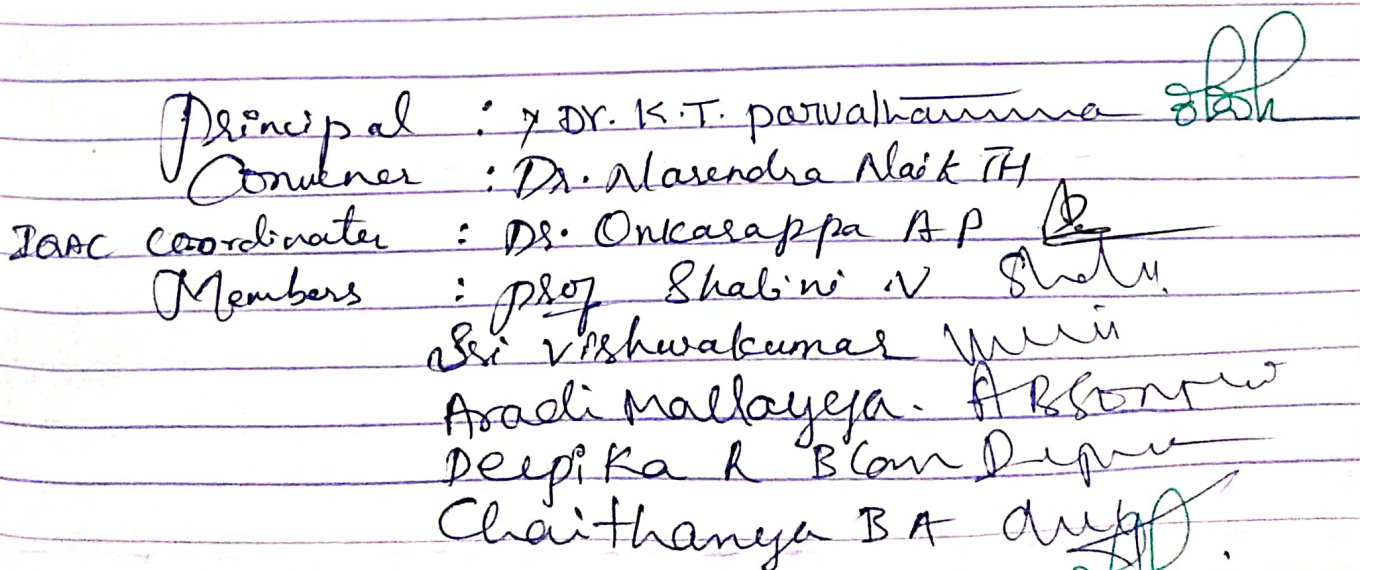 Principal : Dr. K.T. parvathamma
Convener : Dr. Narendra Naik TH
IQAC Coordinater : Dr. Onkarappa A P
Members : prof Shalini N
Sri Vishwakumar
Aradi Mallayya.
Deepika R BCom
Chaithanya BA